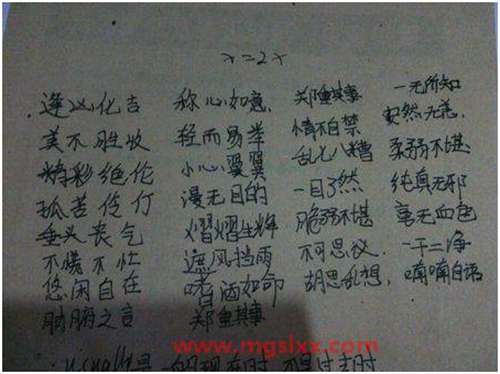 x=2x
逢凶化吉 称心如意, 郑重其事 一无所知
美不胜收 轻而易举 情不自禁 安然无恙,
精彩绝伦 小心翼翼 乱七八糟 柔弱不堪
孤苦伶仃 漫无目的 一目了然 纯真无邪
垂头丧气 熠熠生辉 脆弱不堪 毫无血色
不慌不忙 遮风挡雨 不可思议. 一干二净
悠闲自在 嗜酒如命 胡思乱想, 喃喃自语
肺腑之言 郑重其事
www.mgslxx.com